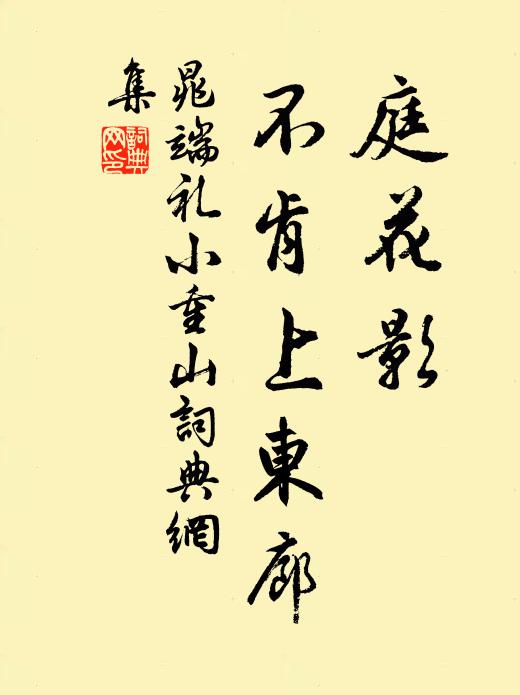 庭花影
不肯上東廊
晁端礼小重山詞典網
集
詞典
网印